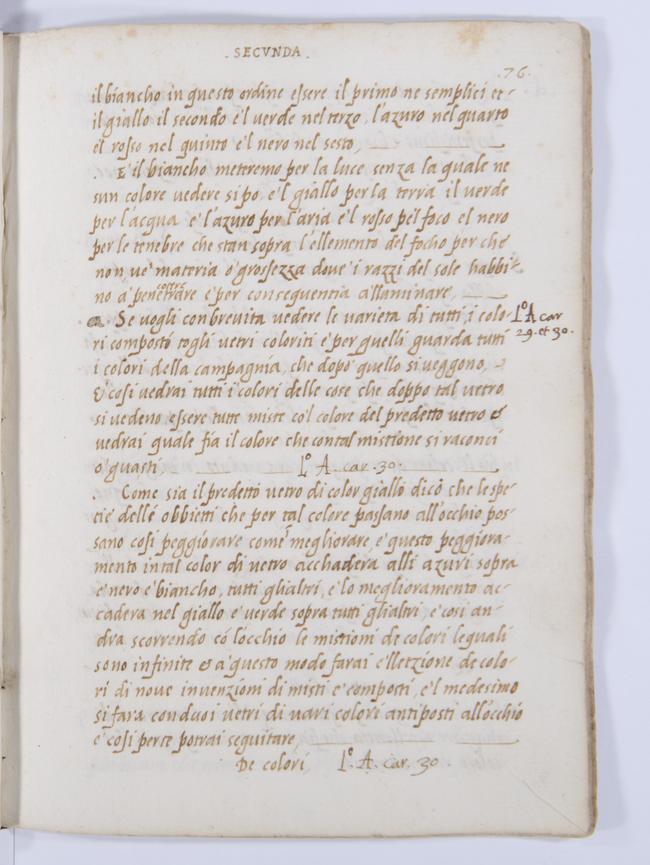 . SECVNDA .
. 76 .
il biancho in questo ordine essere il primo ne semplici et
il giallo il secondo e'l verde nel terzo, l'azuro nel quarto
et rosso nel quinto e'l nero nel sesto,
. E il biancho meteremo per la luce senza la quale ne
sun colore vedere si po, e'l giallo per la terra il verde
per l'acqua e l'azuro per l'aria e'l rosso pel foco el nero
per le tenebre che stan sopra l'ellemento del focho per che
non ve' materia o' grossezza dove i razzi del sole habbi-
no a' penetrare e per consequentia alluminare,
. Se vogli con brevita vedere le varieta di tutti i colo-
ri composto togli vetri coloriti e per quelli guarda tutti
i colori della campagnia, che dopo quello si veggono,
& cosi vedrai tutti i colori delle cose che doppo tal vetro
si vedeno essere tutte miste co'l colore del predetto vetro &
vedrai quale fia il colore che con tal mistione si raconci
o' guasti L.º A. car. 30.
L.º A car
29. et 30.
. Come sia il predetto vetro di color giallo dicò che le spe-
cie delle obbietti che per tal colore passano all'occhio pos-
sano cosi peggiorare come megliorare e questo peggiora-
mento in tal color di vetro acchaderà alli azuri sopra
e nero e biancho, tutti gli altri, e lo meglioramento ac-
caderà nel giallo e verde sopra tutti gli altri, e cosi an-
dra scorrendo có l'occhio le mistioni de colori le quali
sono infinite & a questo modo farai elletzione de colo-
ri di nove invenzioni di misti e composti, e'l medesimo
si fara con duoi vetri di vari colori antiposti all'occhio
e cosi per te potrai seguitare,
De colori L.º A. Car. 30